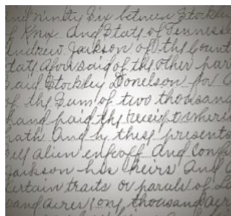 and ninety Six between Stockley
of Knox And State of Tennesse
Andrew Jackson of the Count
State aforesaid of the other par
said Stockley Donelson for
of the Sum of two thousan
hand paid the receipt
hath And by these presents
sell alien enfeoff and Con
Jackson his Heirs And
Certain traits or parcels of La
sand acres (one thousand a